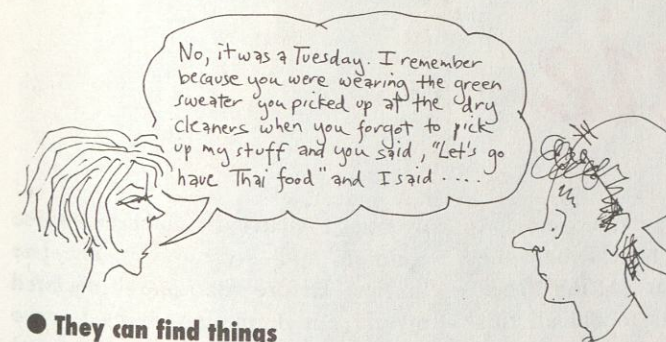 No, it was a Tuesday. I remember
because you were wearing the green
sweater you picked up at the dry
cleaners when you forgot to pick
up my stuff and you said, "Let's go
have Thai food" and I said ....
● They can find things